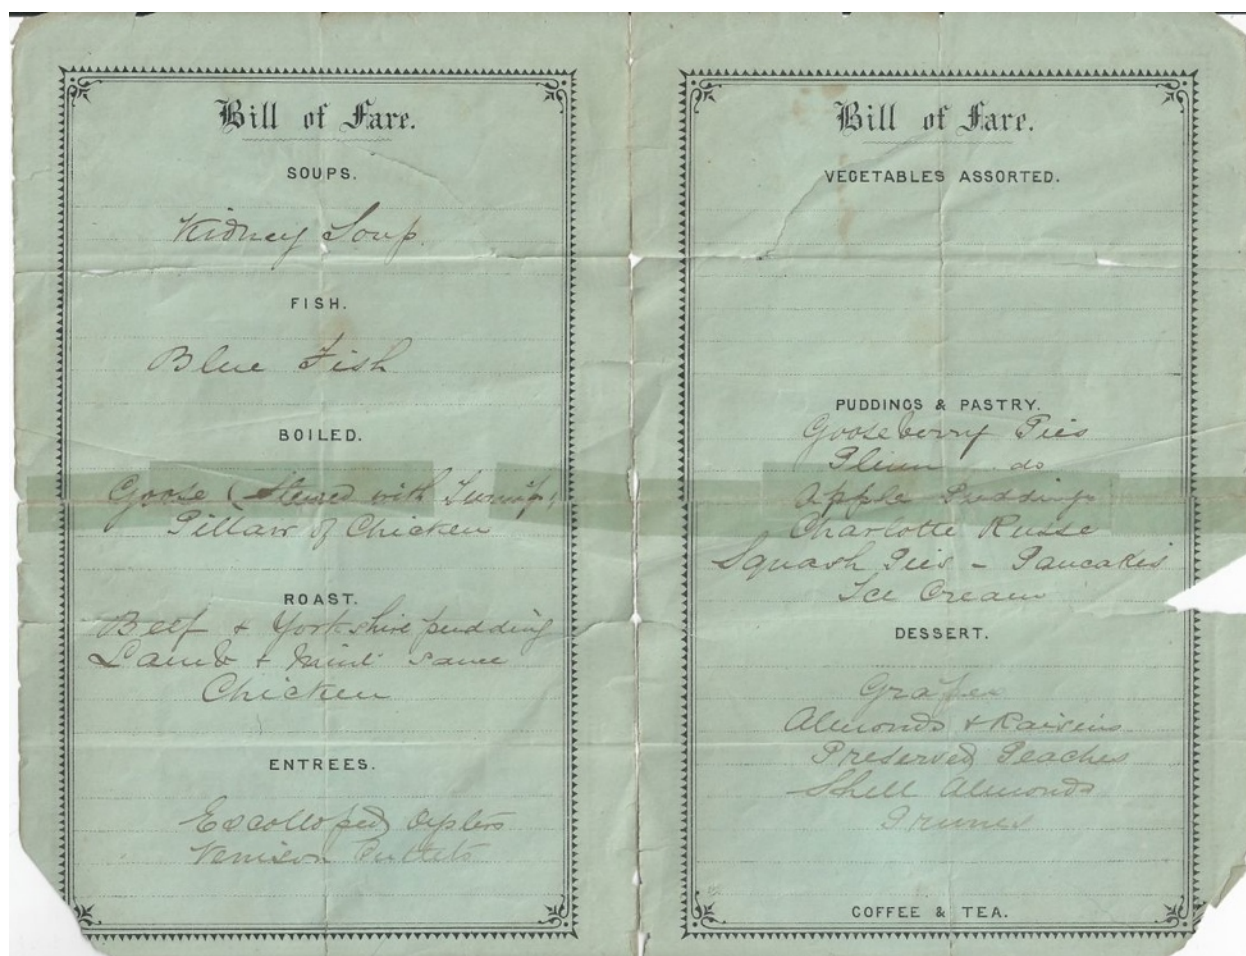 Bill of Fare.
SOUPS.
Kidney Soup.
FISH.
Blue Fish
BOILED.
Goose (Stewed with Turnip)
Pillaw of Chicken
ROAST.
Beef + Yorkshire pudding
Lamb + Mint sauce
Chicken
ENTREES.
Escolloped Oysters
Venison Cutlets
Bill of Fare.
VEGETABLES ASSORTED.
PUDDINGS & PASTRY.
Gooseberry Pies
Plum do
Apple Puddings
Charlotte Russe
Squash Pies - Pancakes
Ice Cream
DESSERT.
Grapes
Almonds + Raisins
Preserved Peaches
Shell Almonds
Prunes
COFFEE & TEA.